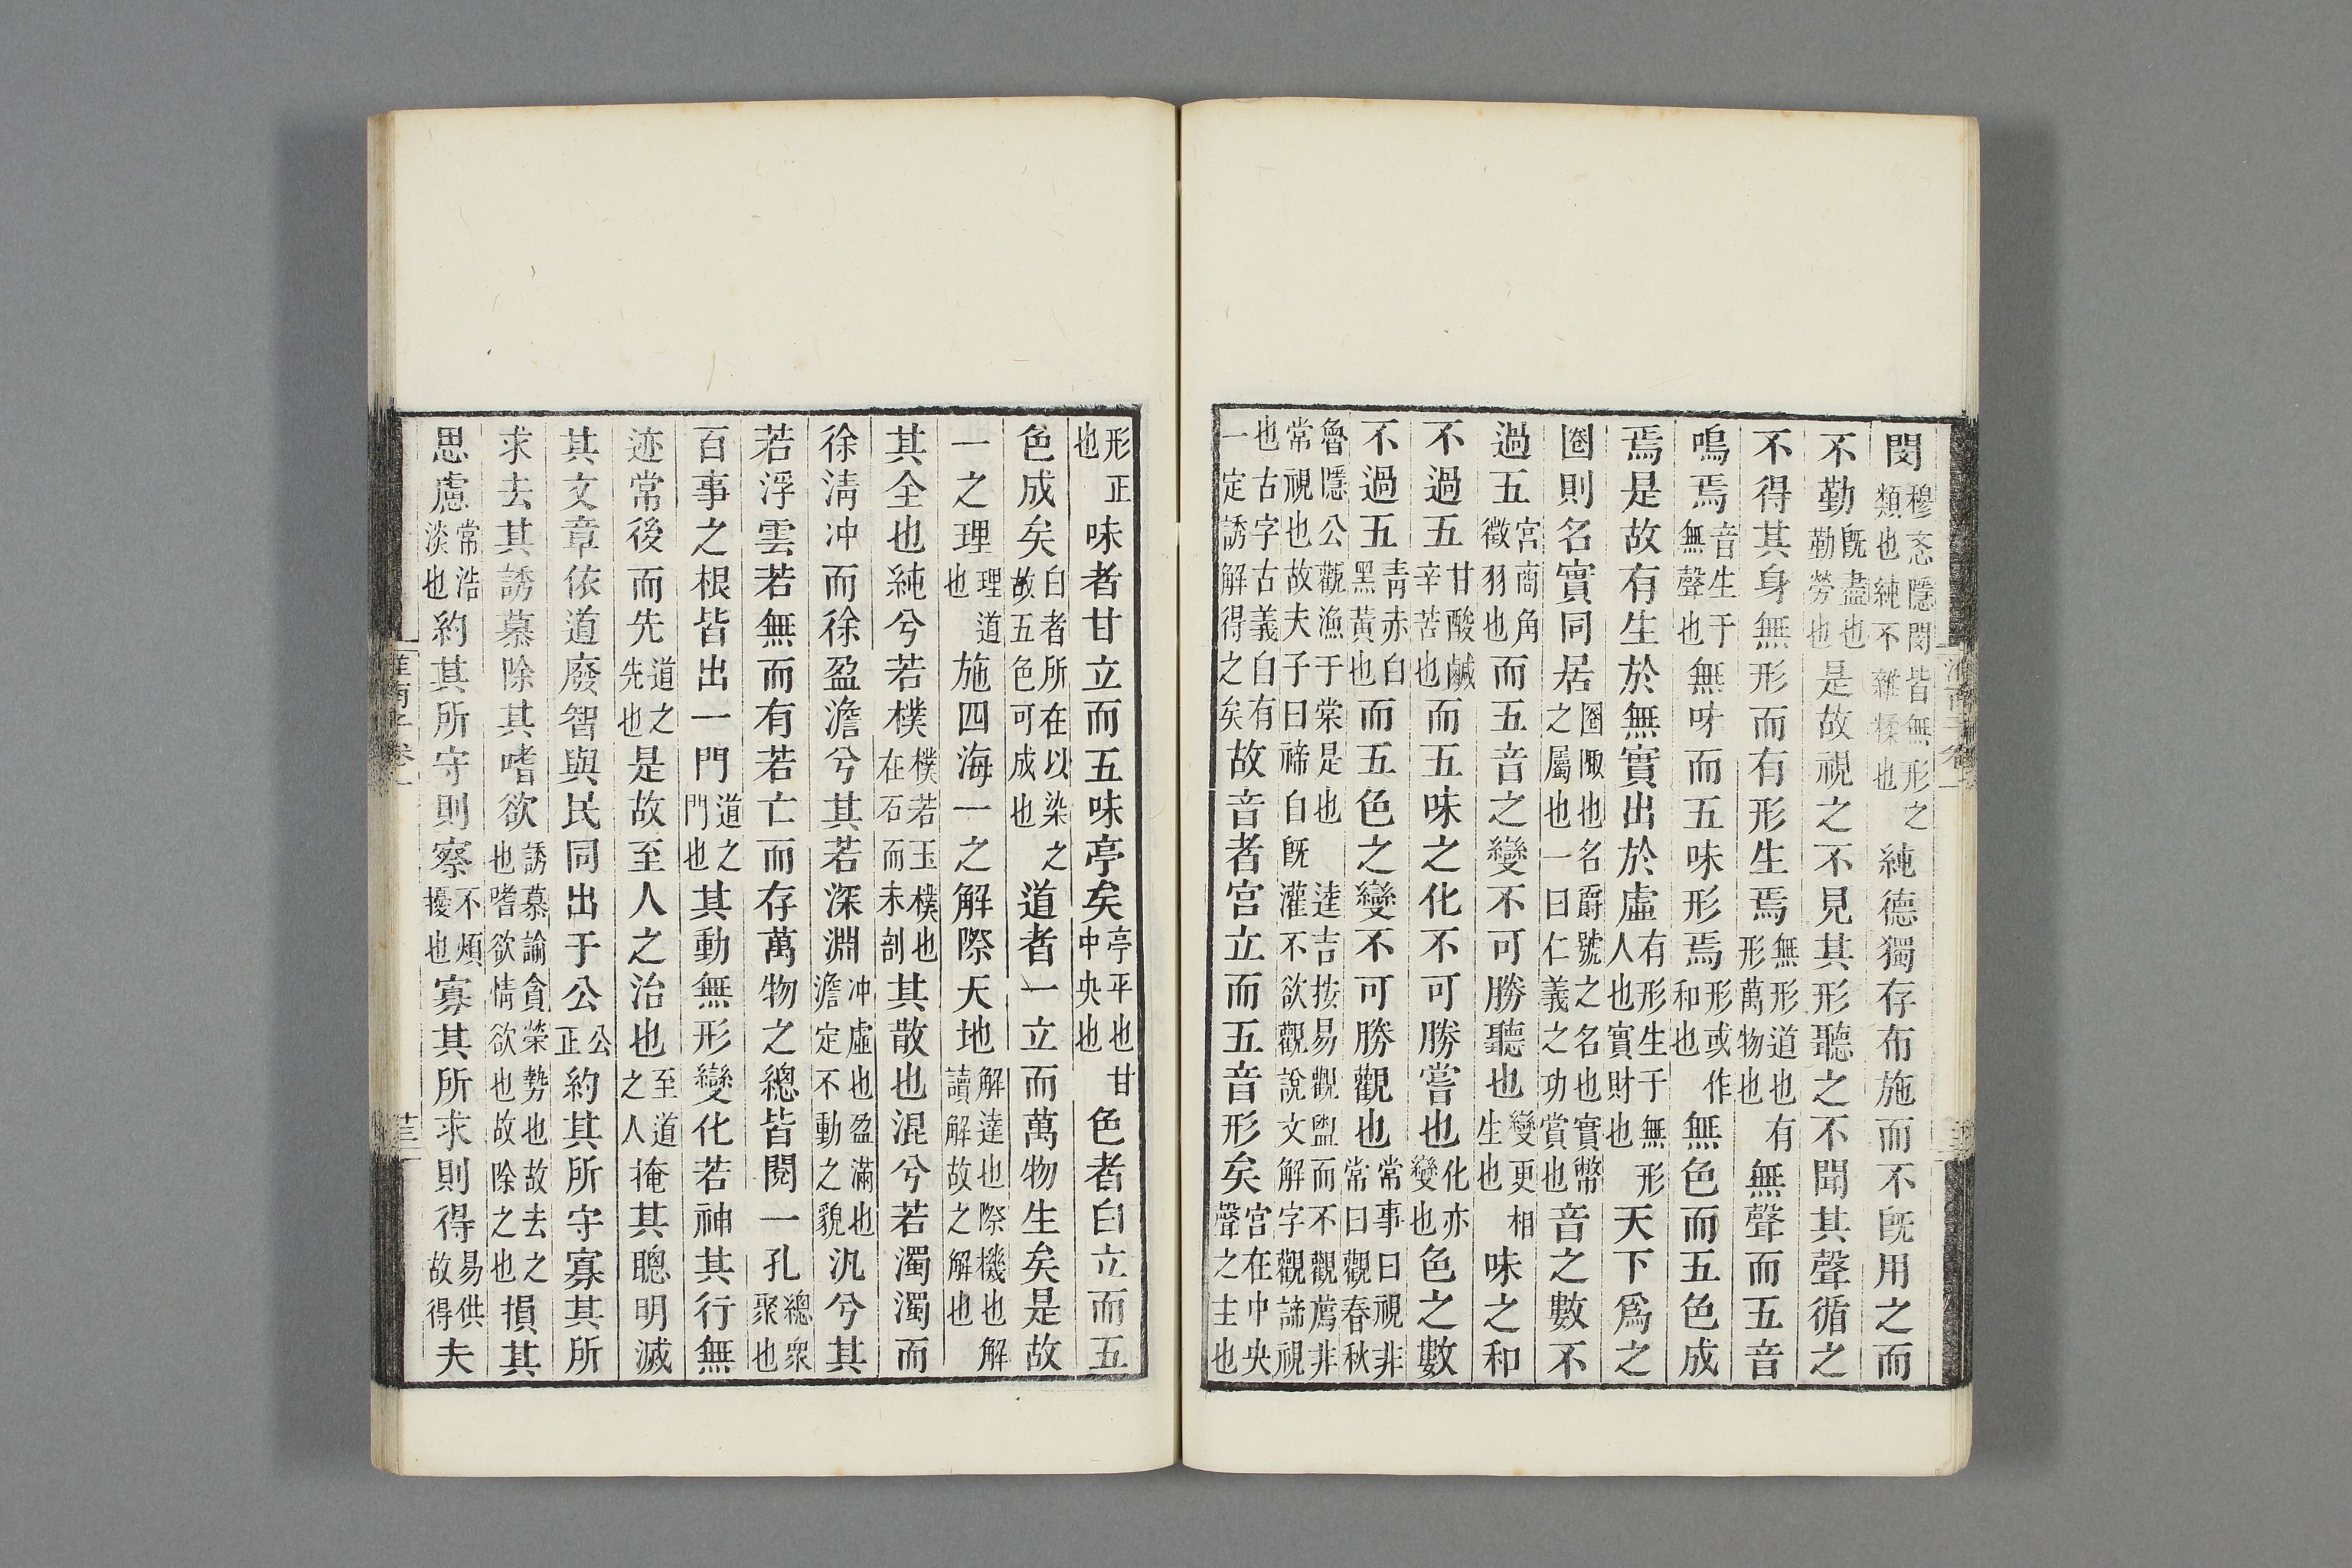 閔穆忞隱閔皆無形之類也純不雜糅也純德獨存布施而不旣用之而
不勤旣盡也勤勞也是故視之不見其形聽之不聞其聲循之
不得其身無形而有形生焉無形道也有形萬物也無聲而五音
鳴焉音生于無聲也無味而五味形焉形或作和也無色而五色成
焉是故有生於無實出於虛有形生于無形人也實財也天下爲之
圈則名實同居圈陬也名爵號之名也實幣之屬也一曰仁義之功賞也音之數不
過五宮商角徵羽也而五音之變不可勝聽也變更相生也味之和
不過五甘酸鹹辛苦也而五味之化不可勝嘗也化亦變也色之數
不過五靑赤白黑黃也而五色之變不可勝觀也常事曰視非常曰觀春秋
魯隱公觀漁于棠是也 逵吉按易觀盥而不觀薦非常視也故夫子曰禘自旣灌不欲觀說文解字觀諦視
也古字古義自有一定誘解得之矣故音者宮立而五音形矣宮在中央聲之主也
形正也味者甘立而五味亭矣亭平也甘中央也色者白立而五
色成矣白者所在以染之故五色可成也道者一立而萬物生矣是故
一之理理道也施四海一之解際天地解達也際機也解讀解故之解也
其全也純兮若樸樸若玉樸也在石而未剖其散也混兮若濁濁而
徐淸冲而徐盈澹兮其若深淵冲虛也盈滿也澹定不動之貌汎兮其
若浮雲若無而有若亡而存萬物之總皆閱一孔總衆聚也
百事之根皆出一門道之門也其動無形變化若神其行無
迹常後而先道之先也是故至人之治也至道之人掩其聰明滅
其文章依道廢智與民同出于公公正約其所守寡其所
求去其誘慕除其嗜欲誘慕諭貪榮勢也故去之也嗜欲情欲也故除之也損其
思慮常浩淡也約其所守則察不煩擾也寡其所求則得易供故得夫
淮南子卷一